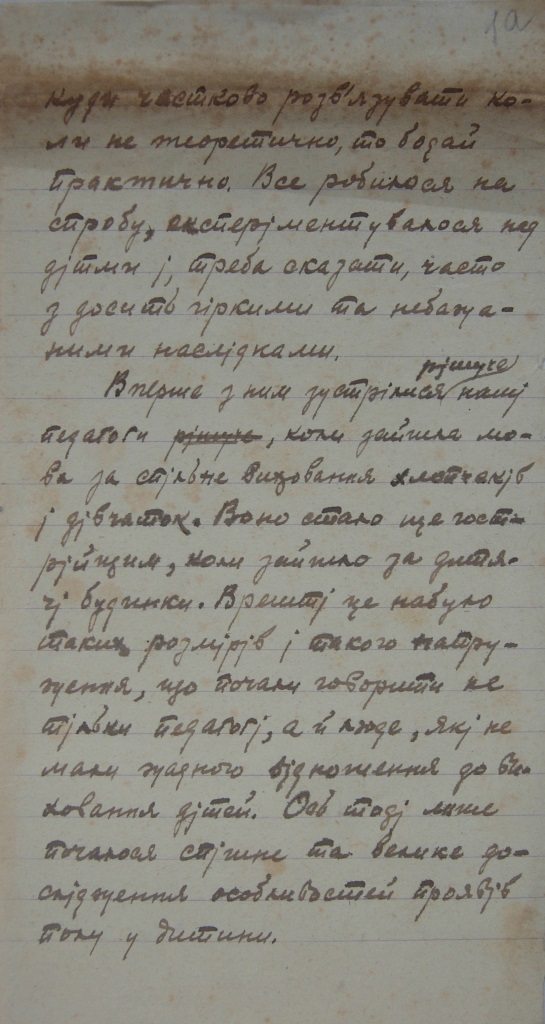 1а
куди частково розв'язувати ко-
ли не теоретично, то бодай
практично. Все робилося на
спробу, експеріментувалося над
дітми і, треба сказати, часто
з досить гіркими та небажа-
ними наслідками.
рішуче
Вперше з ним зустрілися наші
педагоги рішуче, коли зайшла мо-
ва за спільне виховання хлопчаків
і дівчаток. Воно стало ще гості-
рійшим, коли зайшло за дитя-
чі будинки. Врешті це набуло
таких розмірів і такого напру-
ження, що почали говорити не
тільки педагогі, а й люде, які не
мали жадного відношення до ви-
ховання дітей. Ось тоді лише
почалося спішне та велике до-
слідження особливостей проявів
полу у дитини.